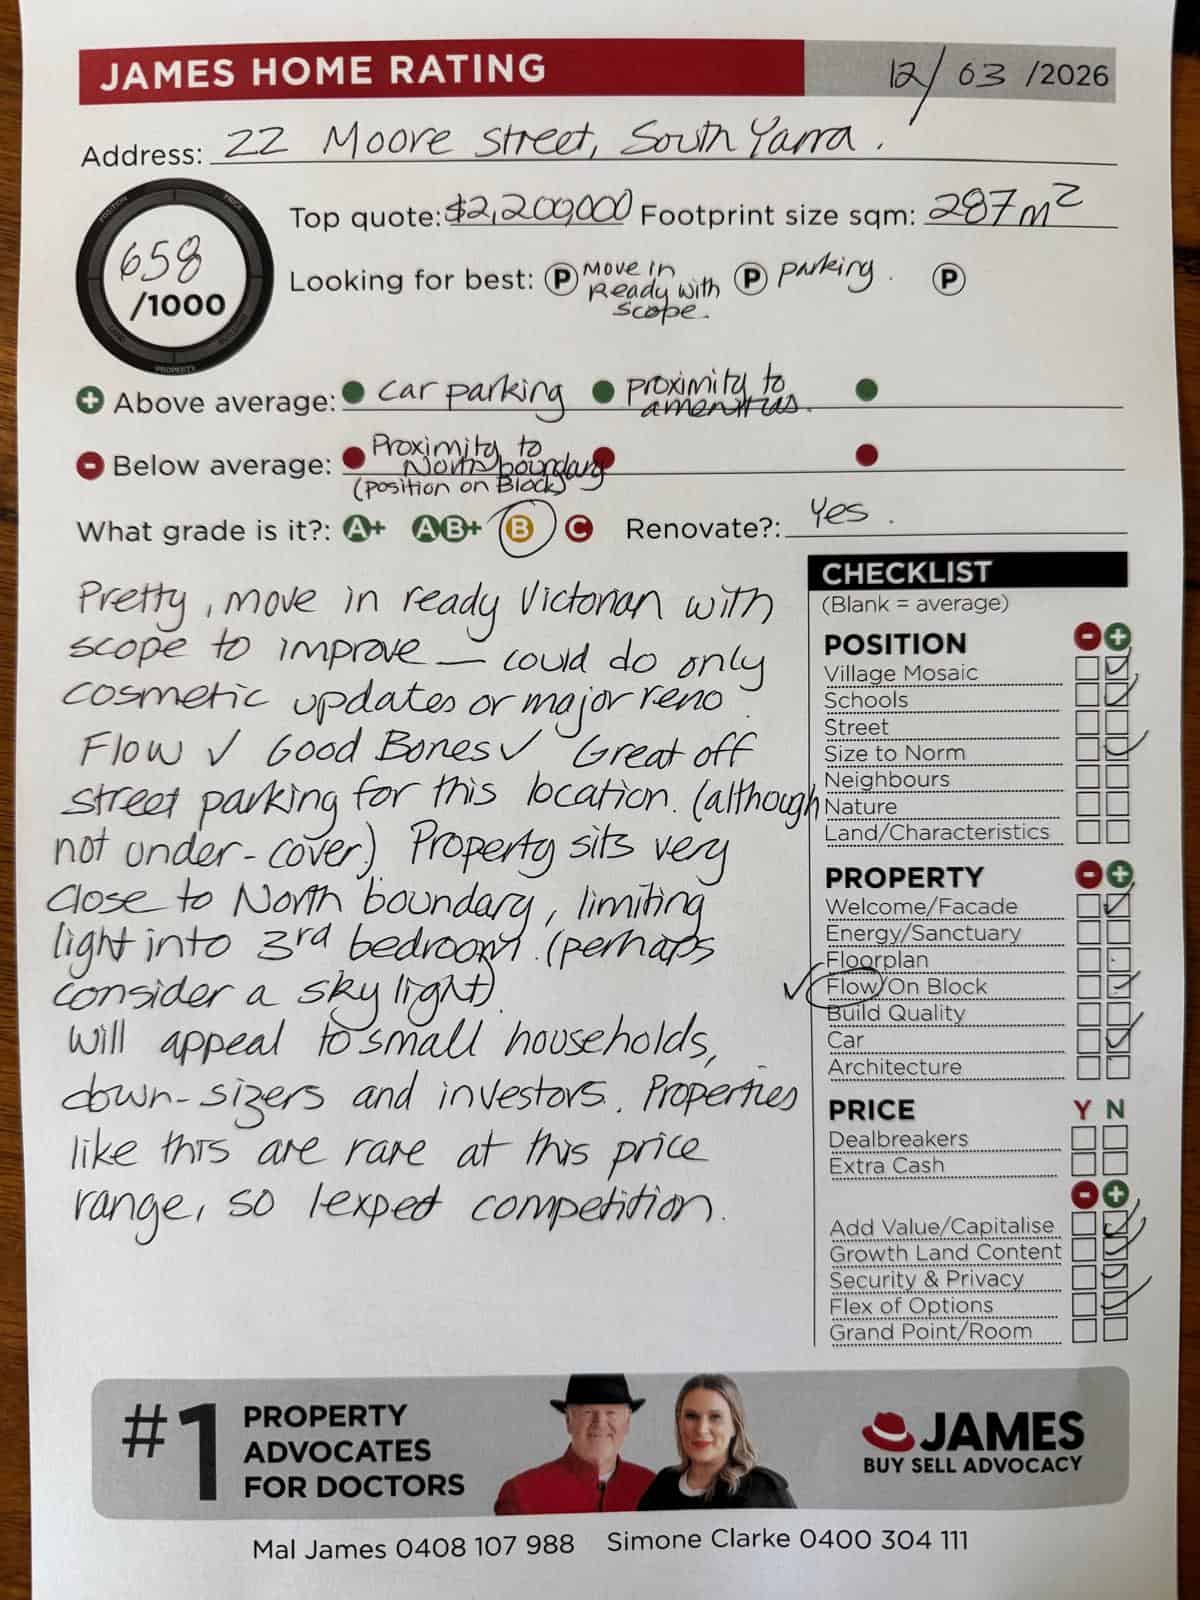 JAMES HOME RATING 12/03/2026
Address: 22 Moore Street, South Yarra.
658
/1000
Top quote: $2,200,000 Footprint size sqm: 287m²
Looking for best: P Move in Ready with scope. P parking. P
+ Above average: car parking proximity to amenities.
- Below average: Proximity to North boundary (position on Block)
What grade is it?: A+ AB+ B C Renovate?: Yes.
Pretty, move in ready Victorian with
scope to improve — could do only
cosmetic updates or major reno.
Flow ✓ Good Bones ✓ Great off
street parking for this location. (although
not under-cover). Property sits very
close to North boundary, limiting
light into 3rd bedroom. (perhaps
consider a sky light)
Will appeal to small households,
down-sizers and investors. Properties
like this are rare at this price
range, so I expect competition.
CHECKLIST
(Blank = average)
POSITION - +
Village Mosaic ✓
Schools ✓
Street
Size to Norm ✓
Neighbours
Nature
Land/Characteristics
PROPERTY - +
Welcome/Facade ✓
Energy/Sanctuary
Floorplan
✓ Flow/On Block ✓
Build Quality
Car ✓
Architecture
PRICE Y N
Dealbreakers
Extra Cash
- +
Add Value/Capitalise ✓
Growth Land Content ✓
Security & Privacy ✓
Flex of Options ✓
Grand Point/Room
#1 PROPERTY
ADVOCATES
FOR DOCTORS
JAMES
BUY SELL ADVOCACY
Mal James 0408 107 988 Simone Clarke 0400 304 111